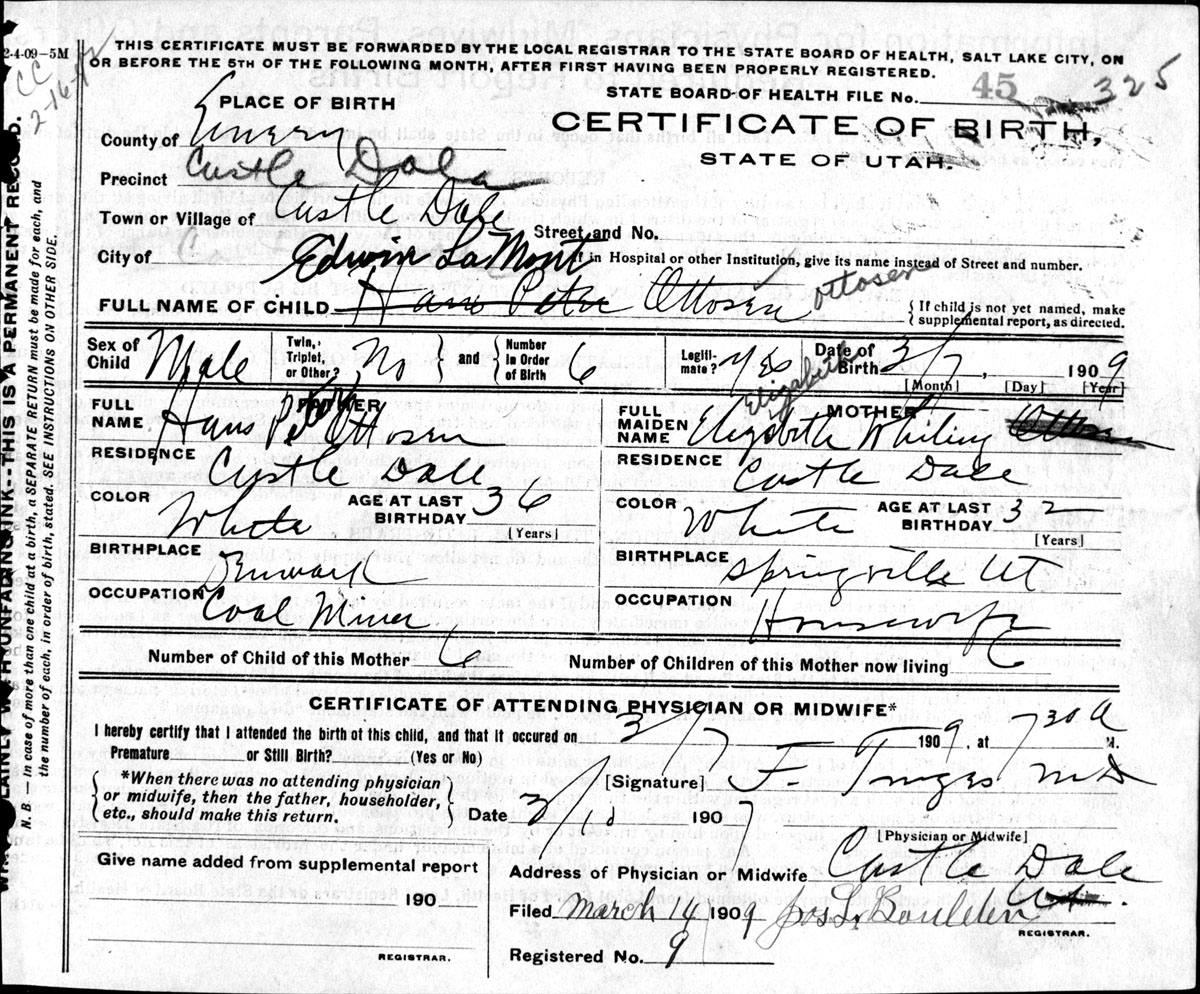 2-4-09—5M
THIS CERTIFICATE MUST BE FORWARDED BY THE LOCAL REGISTRAR TO THE STATE BOARD OF HEALTH, SALT LAKE CITY, ON
OR BEFORE THE 5TH OF THE FOLLOWING MONTH, AFTER FIRST HAVING BEEN PROPERLY REGISTERED.
STATE BOARD OF HEALTH FILE No. 45 325
PLACE OF BIRTH
CERTIFICATE OF BIRTH,
County of Emery
STATE OF UTAH.
Precinct Castle Dale
Town or Village of Castle Dale Street and No.
City of If in Hospital or other Institution, give its name instead of Street and number.
Edwin LaMont Ottosen
FULL NAME OF CHILD Hans Peter Ottosen { If child is not yet named, make
supplemental report, as directed.
Sex of Child Male Twin, Triplet, or Other? No and Number in Order of Birth 6 Legiti-mate? Yes Date of Birth 3/7, 1909
[Month] [Day] [Year]
FATHER
FULL NAME Hans Peter Ottosen
RESIDENCE Castle Dale
COLOR White AGE AT LAST BIRTHDAY 36
[Years]
BIRTHPLACE Denmark
OCCUPATION Coal Miner
MOTHER
Elizabeth
FULL MAIDEN NAME Whiting Ottosen
RESIDENCE Castle Dale
COLOR White AGE AT LAST BIRTHDAY 32
[Years]
BIRTHPLACE Springville Ut
OCCUPATION Housewife
Number of Child of this Mother 6 Number of Children of this Mother now living 6
CERTIFICATE OF ATTENDING PHYSICIAN OR MIDWIFE*
I hereby certify that I attended the birth of this child, and that it occured on 3/7 1909, at 730 a M.
Premature or Still Birth? (Yes or No)
*When there was no attending physician
or midwife, then the father, householder,
etc., should make this return.
[Signature] F. M D
Date 3/10 1907
[Physician or Midwife]
Give name added from supplemental report
190
REGISTRAR.
Address of Physician or Midwife Castle Dale
Filed March 14 1909 Jos. L. Boulden
REGISTRAR.
Registered No. 9
N. B. In case of more than one child at a birth, a SEPARATE RETURN must be made for each, and
the number of each, in order of birth, stated. SEE INSTRUCTIONS ON OTHER SIDE.
PLAINLY WITH UNFADING INK--THIS IS A PERMANENT RECORD.